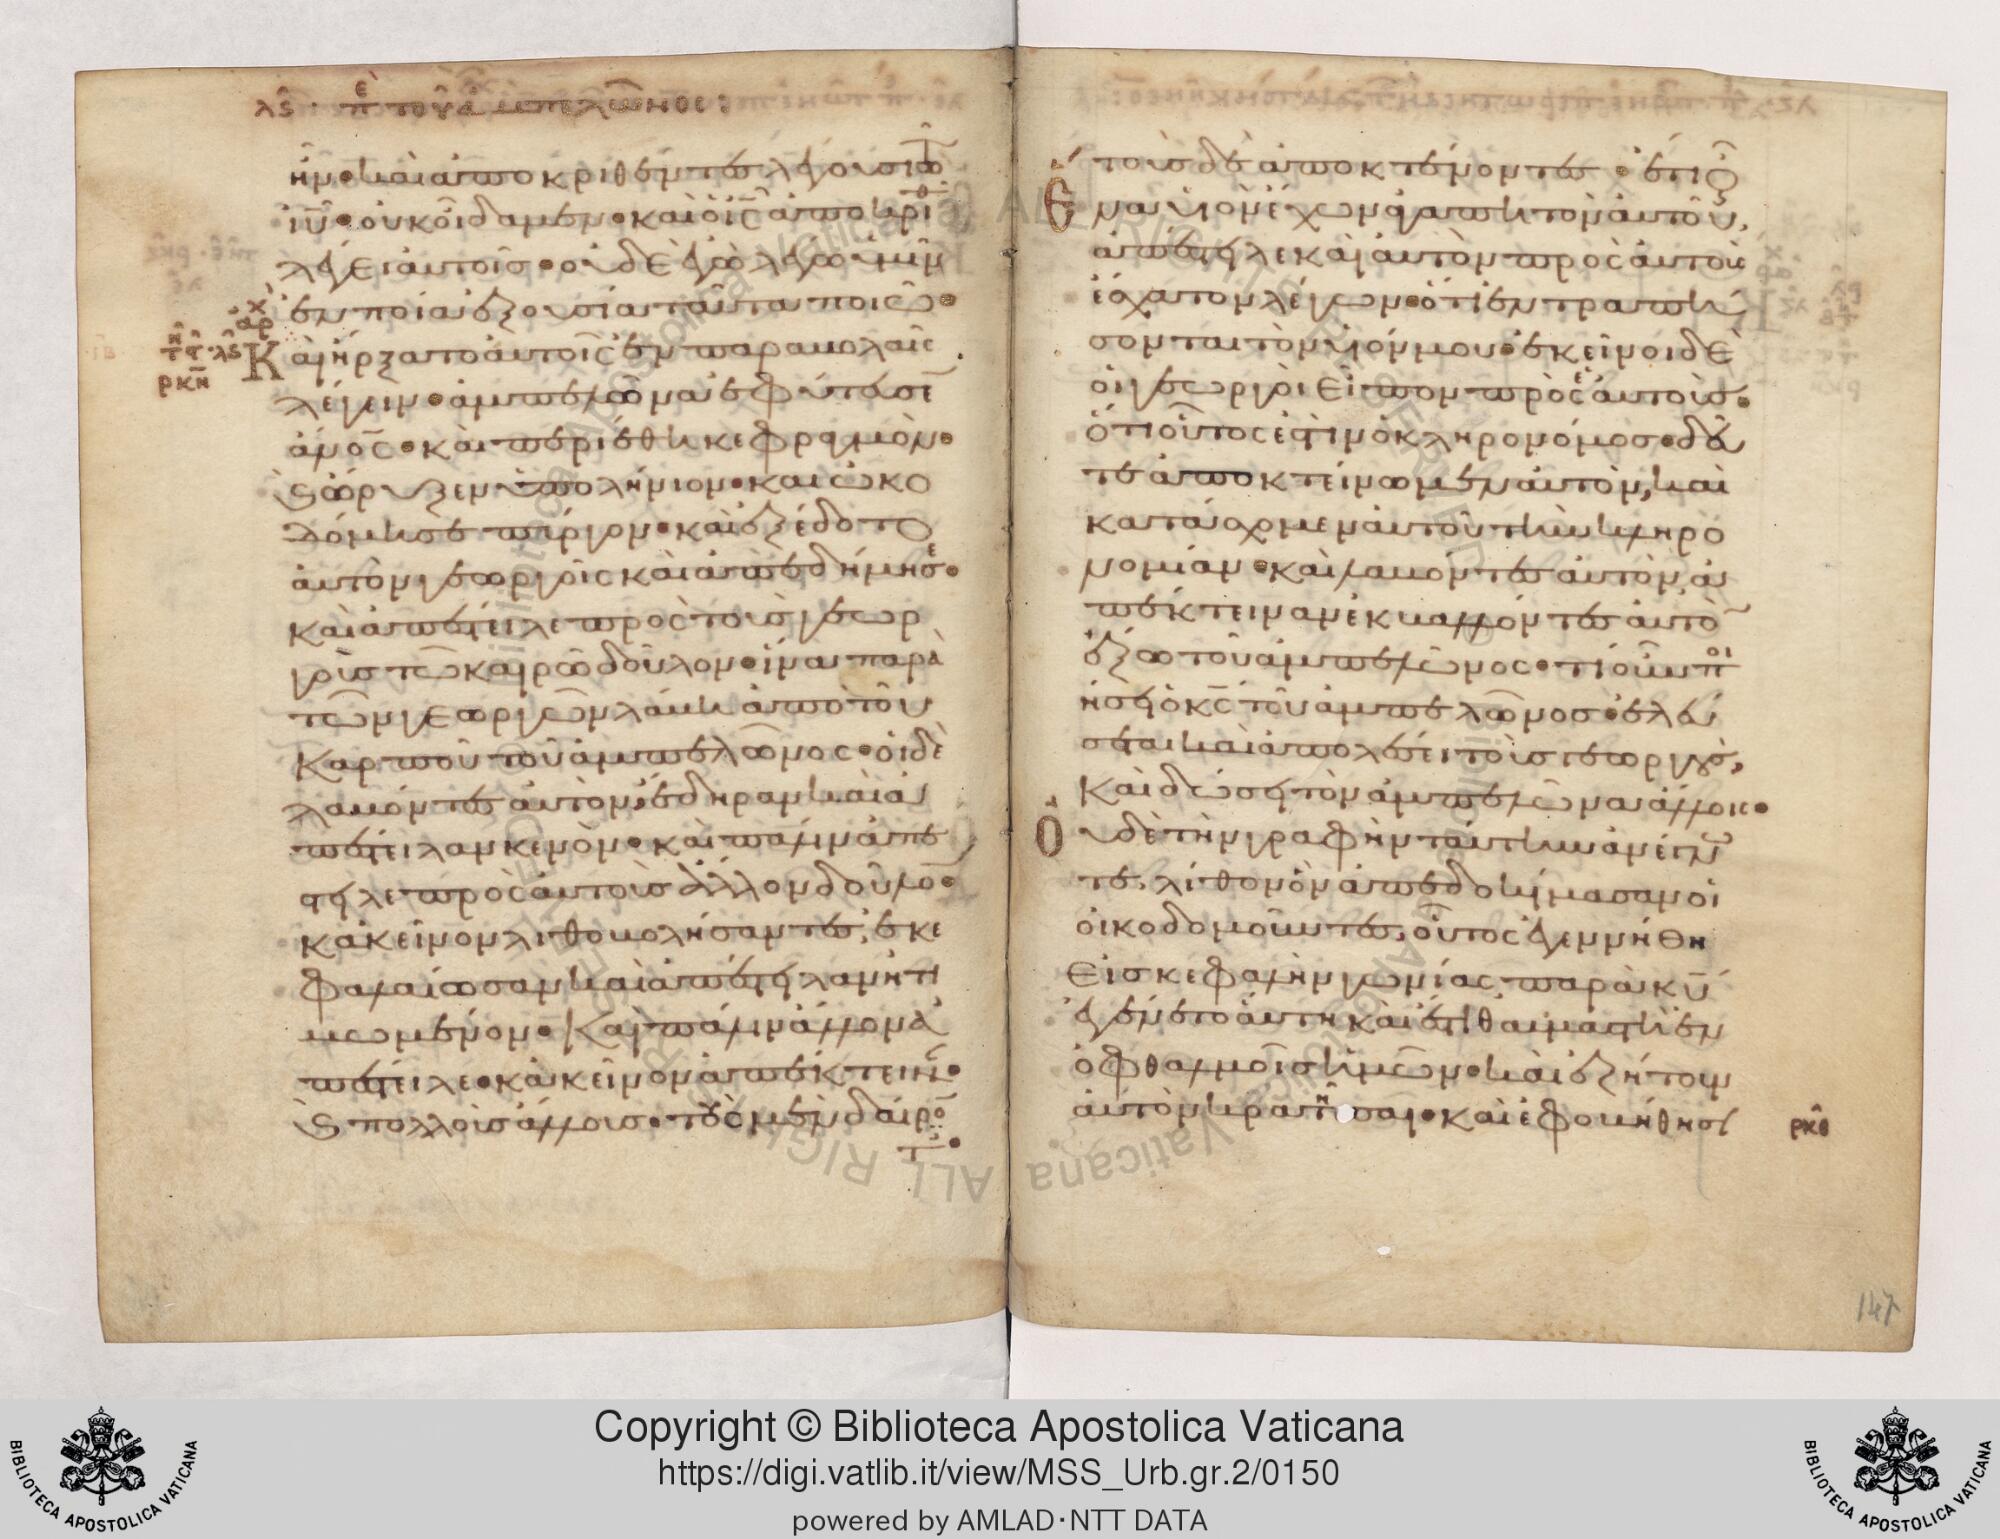 λς · πε τοῦ ἀμπελῶνος:
ἦν· καὶ ἀποκριθέντες λέγουσι τῶ
ἰῦ· οὐκ οἴδαμεν· καὶ ὁ ἰς ἀποκριθ
λέγει αὐτοῖς· οὐδὲ ἐγὼ λέγω ὑμῖν
ἐν ποία ἐξουσία ταῦτα ποιῶ·
Καὶ ἤρξατο αὐτοῖς ἐν παραβολαῖς
λέγειν· ἀμπελῶνα ἐφύτευσε
ἄνος· καὶ περιέθηκε φραγμὸν·
καὶ ὤρυξεν ὑπολήνιον· καὶ ὠκο
δόμησε πύργον· καὶ ἐξέδοτο
αὐτὸν γεωργοῖς καὶ ἀπεδήμησε·
καὶ ἀπέστειλε πρὸς τοὺς γεωρ
γοὺς τῶ καιρῶ δοῦλον· ἵνα παρὰ
τῶν γεωργῶν λάβη ἀπὸ τοῦ
καρποῦ τοῦ ἀμπελῶνος· οἱ δὲ
λαβόντες αὐτὸν, ἔδηραν καὶ ἀ
πέστειλαν κενὸν· καὶ πάλιν ἀπέ
στειλε πρὸς αὐτοὺς ἄλλον δοῦλον·
κἀκεῖνον λιθοβολήσαντες, ἐκε
φαλαίωσαν καὶ ἀπέστειλαν ἠτι
μωμένον· Καὶ πάλιν ἄλλον ἀ
πέστειλε· κἀκεῖνον ἀπέκτειναν·
καὶ πολλοὺς ἄλλους· τοὺς μὲν δαίρον
τ·
χ
ἀρ
τη τ · λς
ρκη
τοὺς δὲ ἀποκτένοντες· ἔτι οὖν
ἕνα υἱὸν ἔχων ἀγαπητὸν αὐτοῦ,
ἀπέστειλε καὶ αὐτὸν πρὸς αὐτοὺς
ἔσχατον λέγων· ὅτι ἐντραπή
σονται τὸν υἱόν μου· ἐκεῖνοι δὲ
οἱ γεωργοὶ εἶπον πρὸς ἑαυτοὺς·
ὅτι οὗτος ἐστιν ὁ κληρονόμος· δεῦ
τε ἀποκτείνωμεν αὐτὸν, καὶ
κατάσχωμεν αὐτοῦ τὴν κληρο
νομίαν· καὶ λαβόντες αὐτὸν, ἀ
πέκτειναν ἐκβαλλόντες αὐτὸ
ἔξω τοῦ ἀμπελῶνος· τί οὖν ποι
ήσει ὁ κς τοῦ ἀμπελῶνος· ἐλεύ
σεται καὶ ἀπολέσει τοὺς γεωργοὺς,
Καὶ δώσει τὸν ἀμπελῶνα ἄλλοις·
Οὐδὲ τὴν γραφὴν ταύτην ἀνέγνω
τε, λίθον ὃν ἀπεδοκίμασαν οἱ
οἰκοδομοῦντες, οὗτος ἐγεννήθη
εἰς κεφαλὴν γωνίας, παρὰ κυ
ἐγένετο αὕτη καὶ ἔστι θαυμαστὴ ἐν
ὀφθαλμοῖς ἡμῶν· καὶ ἐζήτουν
αὐτὸν κρατῆσαι· καὶ ἐφοβήθησ
ρκθ
147
Copyright © Biblioteca Apostolica Vaticana
https://digi.vatlib.it/view/MSS_Urb.gr.2/0150
powered by AMLAD·NTT DATA
BIBLIOTECA APOSTOLICA VATICANA
BIBLIOTECA APOSTOLICA VATICANA